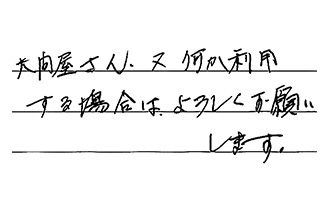 大問屋さん、又何か利用
する場合は、よろしくお願い
します。